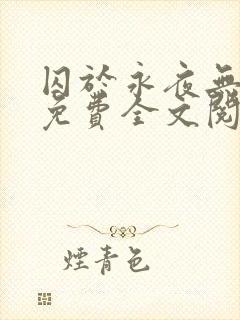 囚於永夜無
免費全文閱
煙青色